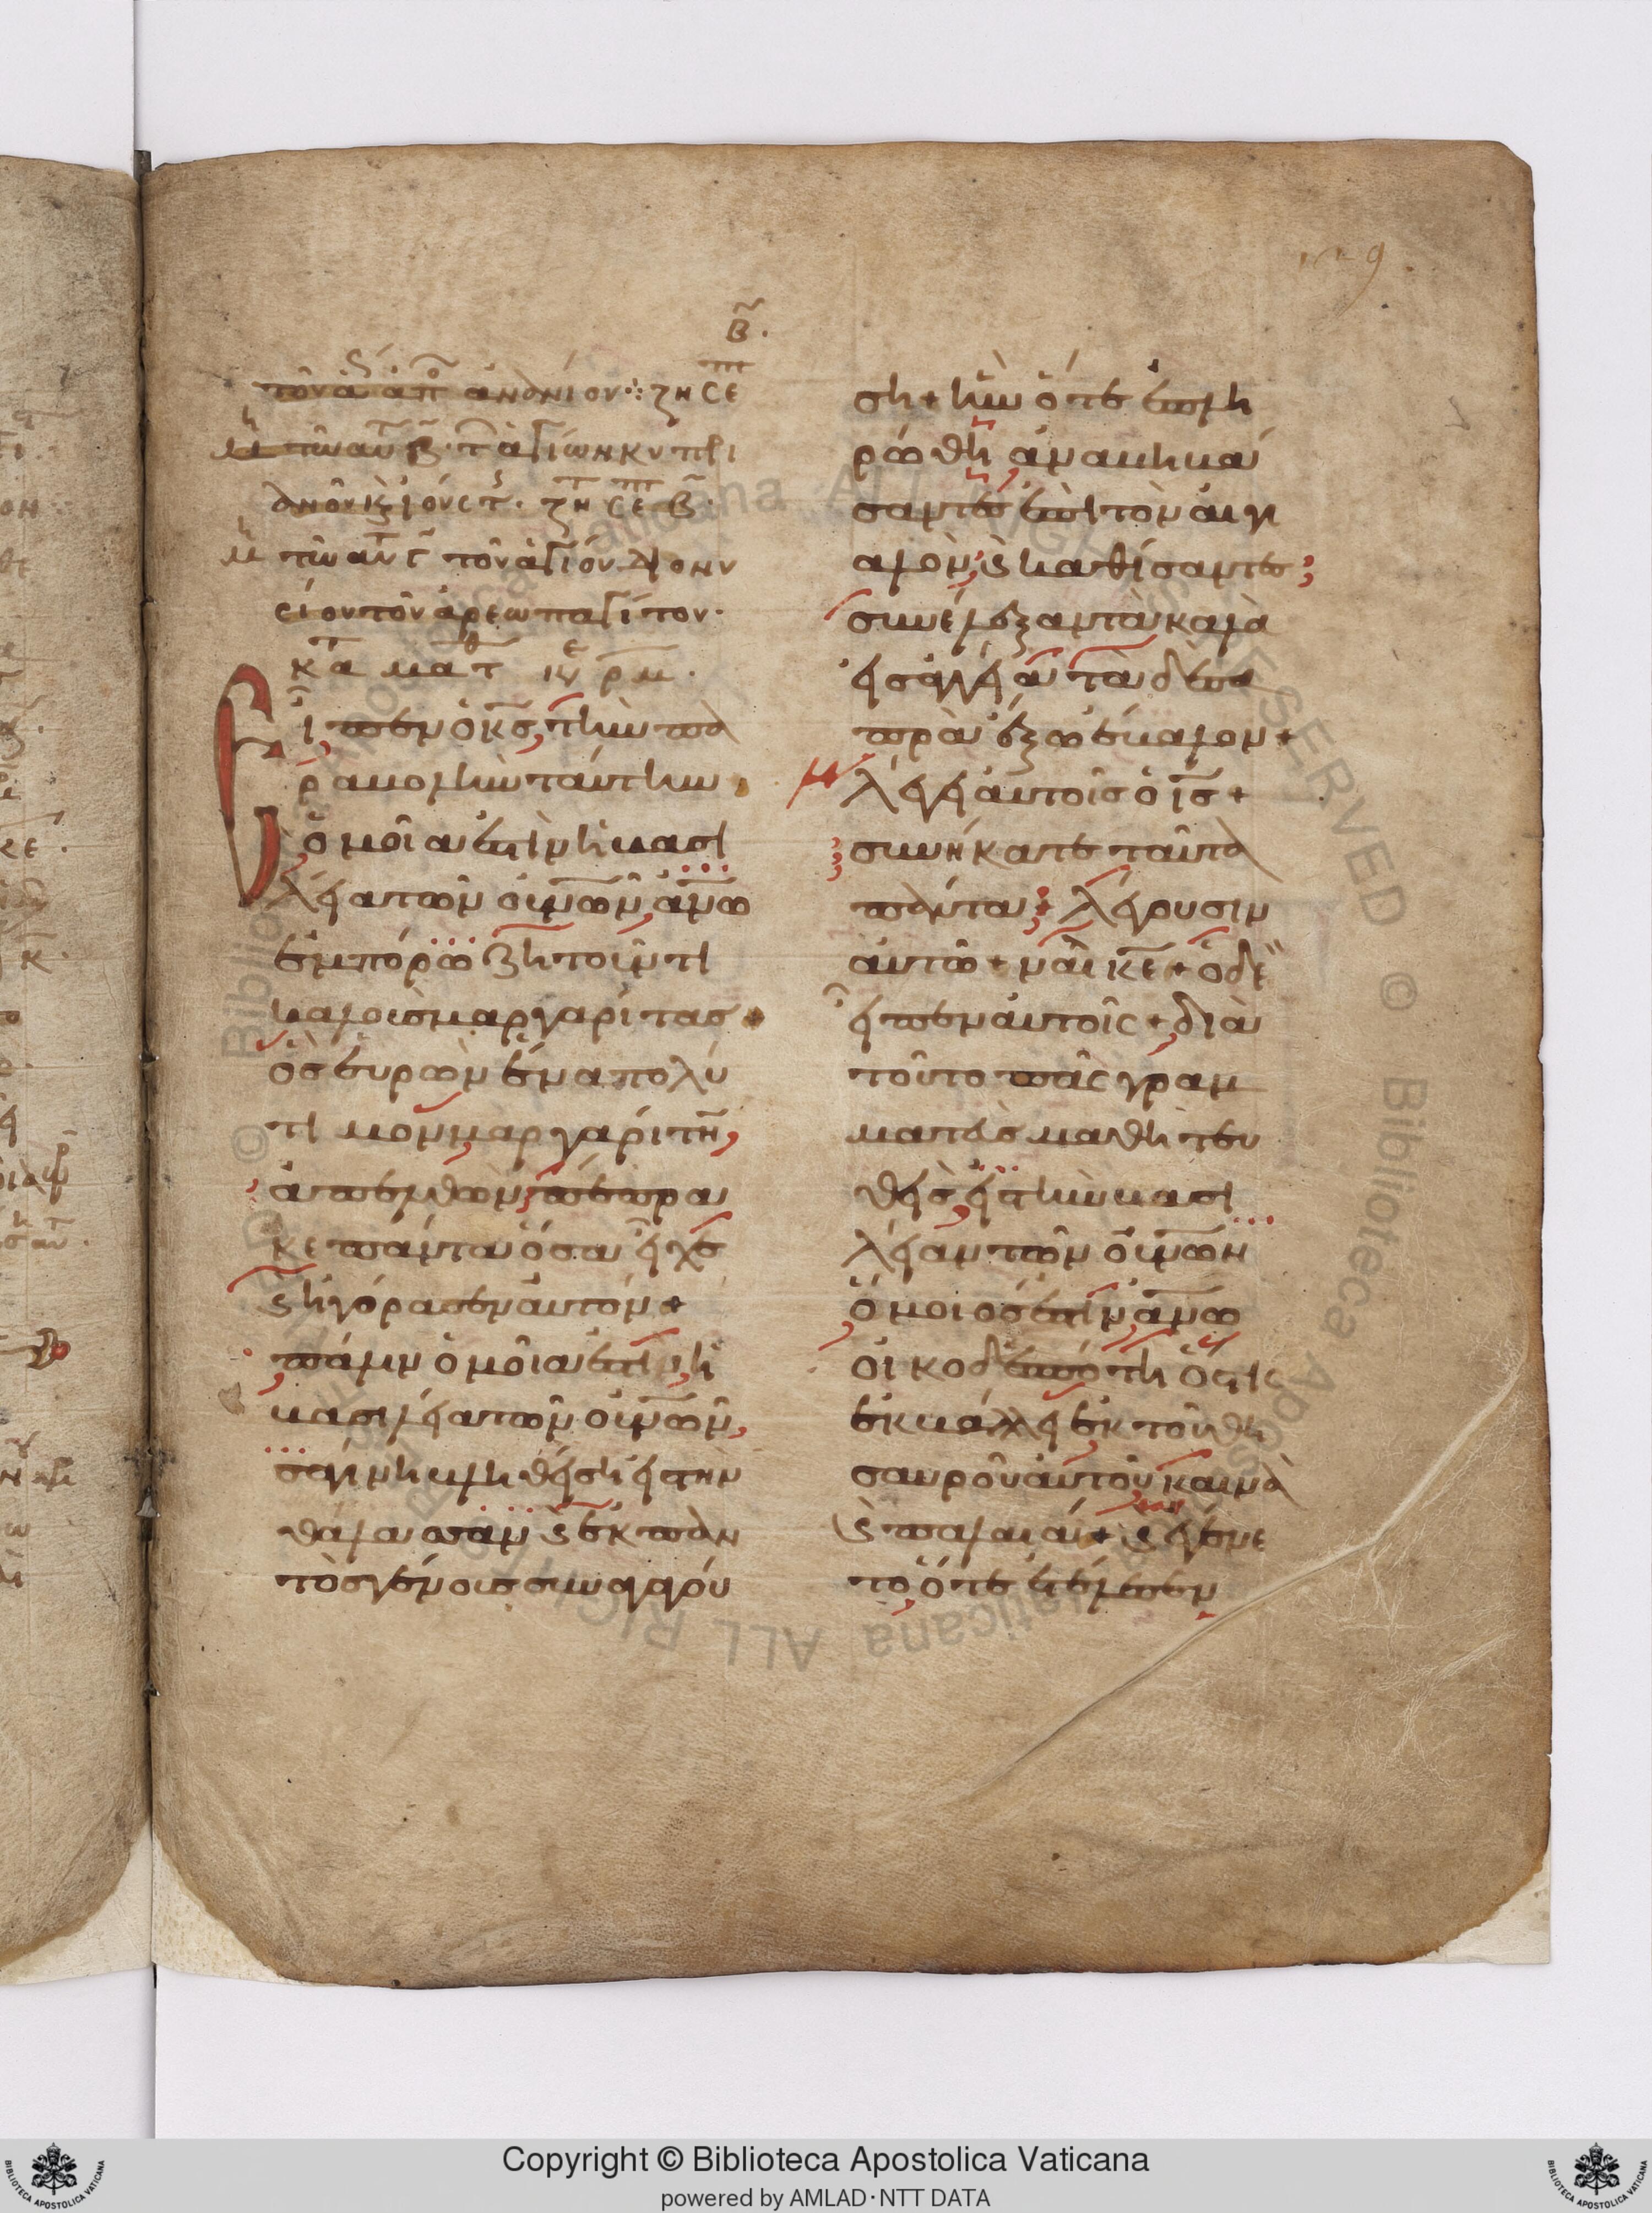 129
β.
τοῦ ἁ ἀπ ἀνανίου ζη σε
μ τῶ αὐ β. τ ἁγίων κυπρι
ανοῦ κ ἰουστ. ζη σε β.
μ τῶ αὐ γ τοῦ ἁγίου διονυ
σίου τοῦ ἀρεωπαγίτου.
κατα ματθ κε ρμ.
Εἶπεν ὁ κς τὴν πα
ραβολὴν ταύτην
ὁμοία ἐστὶν ἡ βασι
λεία τῶν οὐνῶν ἀνω
ἐμπόρω ζητοῦντι
καλοὺς μαργαρίτας +
ὃς εὑρὼν ἕνα πολύ
τιμον μαργαρίτην,
ἀπελθὼν πέπρα
κε πάντα ὅσα εἶχε
κ ἠγόρασεν αὐτόν +
πάλιν ὁμοία ἐστὶν ἡ
βασιλεία τῶν οὐνῶν,
σαγίνη βληθείση εἰς τὴν
θάλασσαν κ ἐκ παν
τὸς γένους συναγαγού
ση + ἣν ὅτε ἐπλη
ρώθη ἀναβιβά
σαντες ἐπὶ τὸν αἰγι
αλὸν, κ καθίσαντες
συνέλεξαν τὰ καλὰ
εἰς ἀγγεῖα τὰ δὲ σα
πρὰ ἔξω ἔβαλον +
λέγει αὐτοῖς ὁ ις +
συνήκατε ταῦτα
πάντα; λέγουσιν
αὐτῶ + ναὶ κε + ὁ δὲ
εἶπεν αὐτοῖς + διὰ
τοῦτο πᾶς γραμ
ματεὺς μαθητευ
θεὶς εἰς τὴν βασι
λείαν τῶν οὐνῶν
ὅμοιός ἐστιν ἀνω
οἰκοδεσπότη ὅστις
ἐκβάλλει ἐκ τοῦ θη
σαυροῦ αὐτοῦ καινὰ
κ παλαιά + κ ἐγένε
το ὅτε ἐτέλεσεν
Copyright © Biblioteca Apostolica Vaticana
powered by AMLAD·NTT DATA